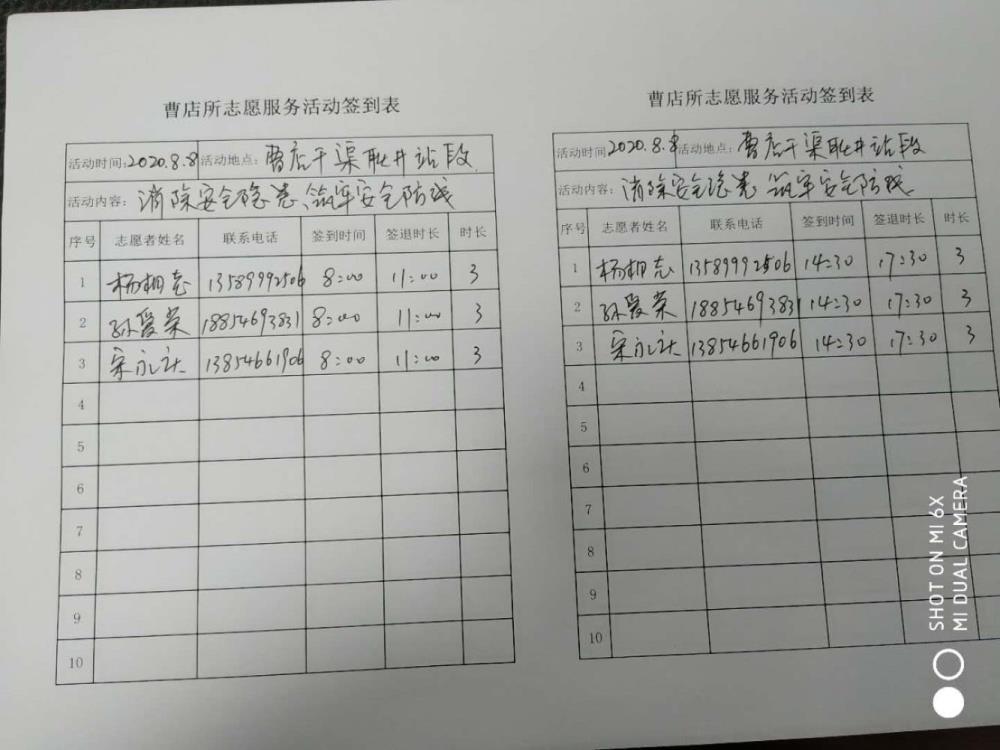 曹店所志愿服务活动签到表
活动时间:2020.8.8 活动地点:曹店干渠耿井站段
活动内容:消除安全隐患、筑牢安全防线
序号 志愿者姓名 联系电话 签到时间 签退时长 时长
1 杨相志 13589992506 8:00 11:00 3
2 孙爱荣 18854693831 8:00 11:00 3
3 宋永社 13854661906 8:00 11:00 3
4
5
6
7
8
9
10
曹店所志愿服务活动签到表
活动时间 2020.8.8 活动地点:曹店干渠耿井站段
活动内容:消除安全隐患、筑牢安全防线
序号 志愿者姓名 联系电话 签到时间 签退时长 时长
1 杨相志 13589992506 14:30 17:30 3
2 孙爱荣 18854693831 14:30 17:30 3
3 宋永社 13854661906 14:30 17:30 3
4
5
6
7
8
9
10
SHOT ON MI 6X
MI DUAL CAMERA